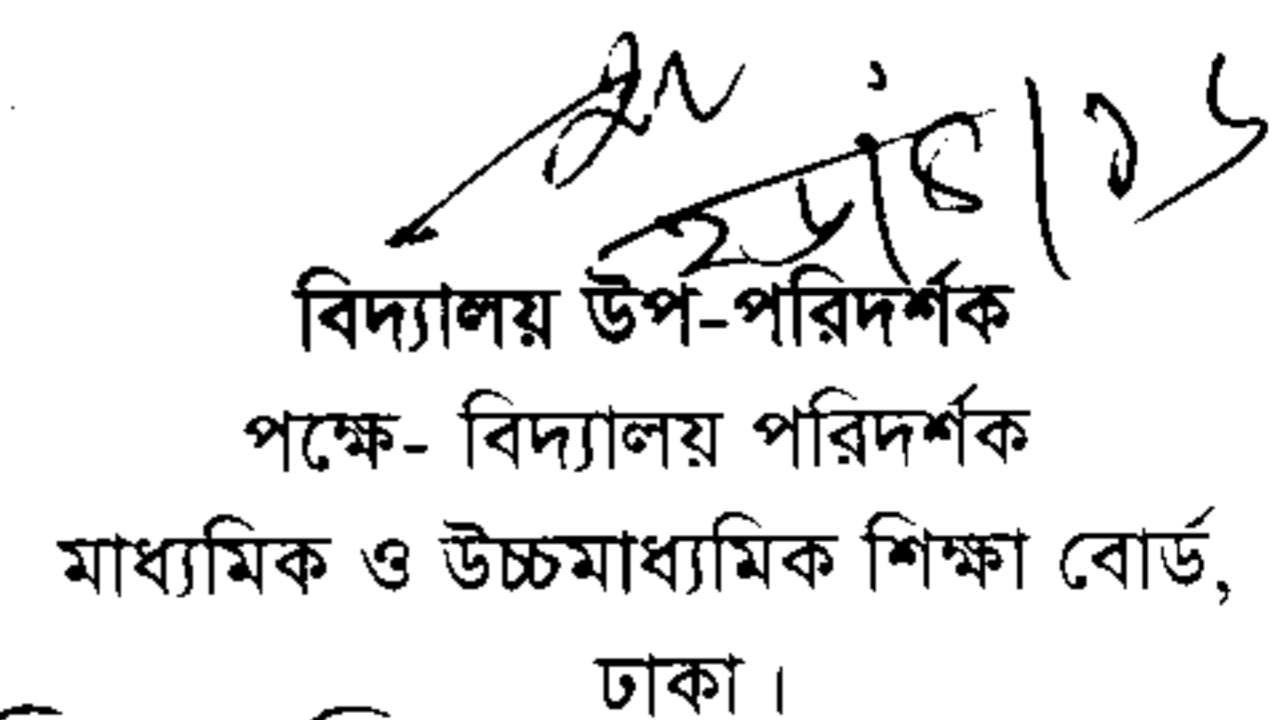 বিদ্যালয় উপ-পরিদর্শক
পক্ষে- বিদ্যালয় পরিদর্শক
মাধ্যমিক ও উচ্চমাধ্যমিক শিক্ষা বোর্ড,
ঢাকা।